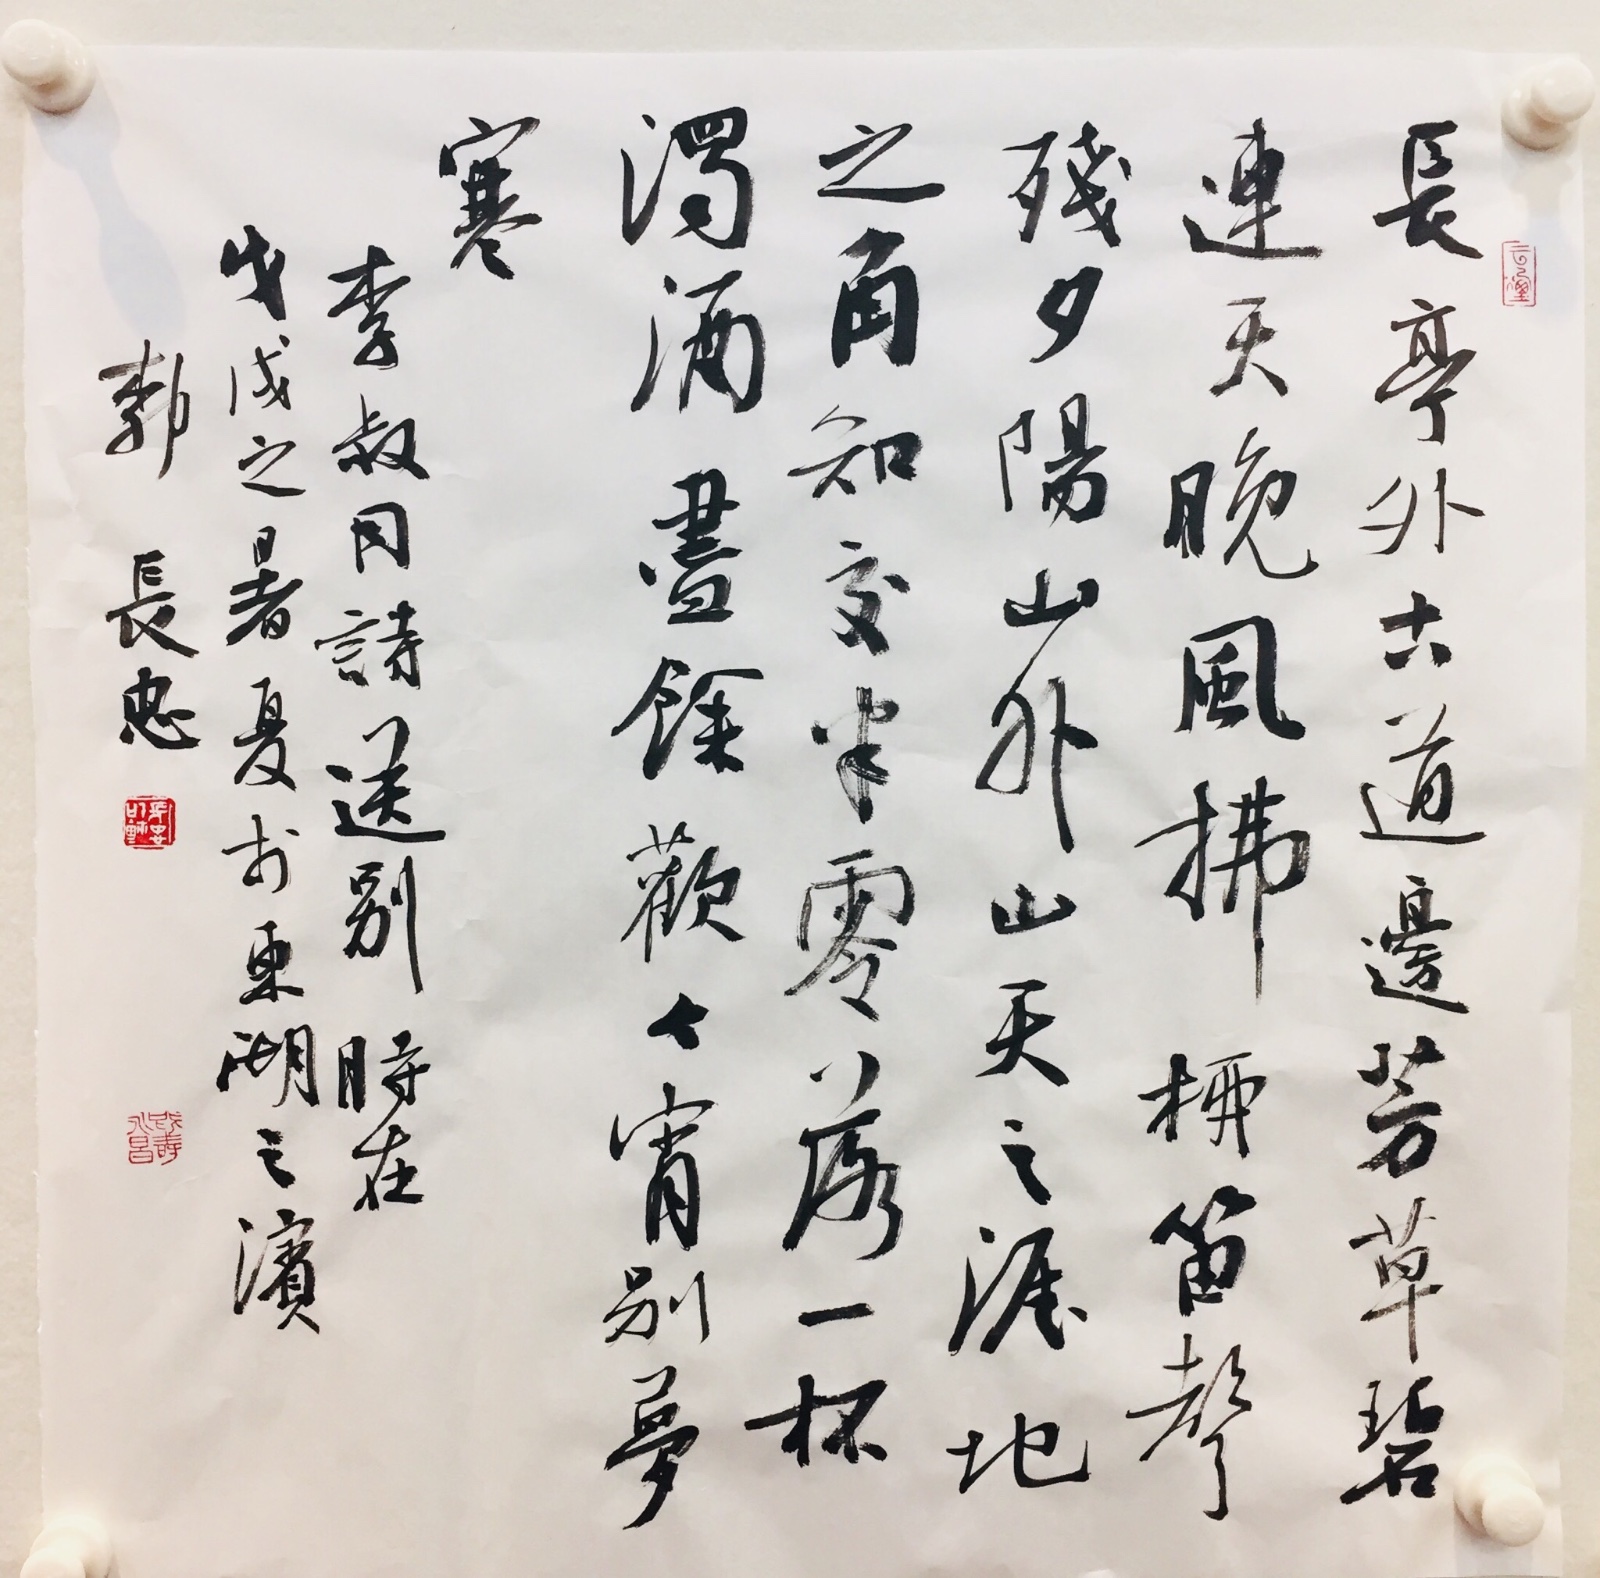 長亭外古道邊芳草碧
連天晚風拂柳笛聲
殘夕陽山外山天之涯地
之角知交半零落一杯
濁酒盡餘歡今宵別夢
寒
李叔同詩送別時在
戊戌之暑夏於東湖之濱
郭長忠